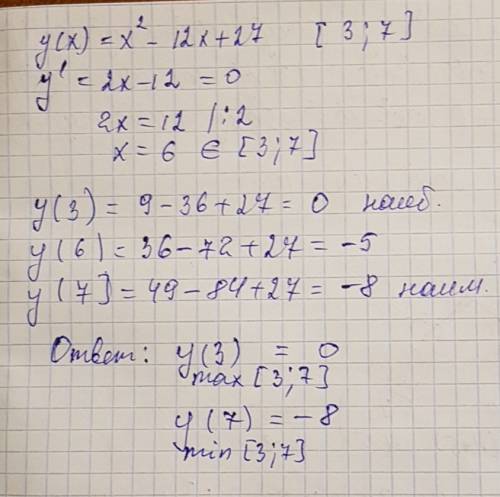 y(x) = x² - 12x + 27 [3; 7]
y' = 2x - 12 = 0
2x = 12 /:2
x = 6 ∈ [3; 7]
y(3) = 9 - 36 + 27 = 0 наиб.
y(6) = 36 - 72 + 27 = -5
y(7] = 49 - 84 + 27 = -8 наим.
Ответ: y(3) = 0
max [3; 7]
y(7) = -8
min [3; 7]